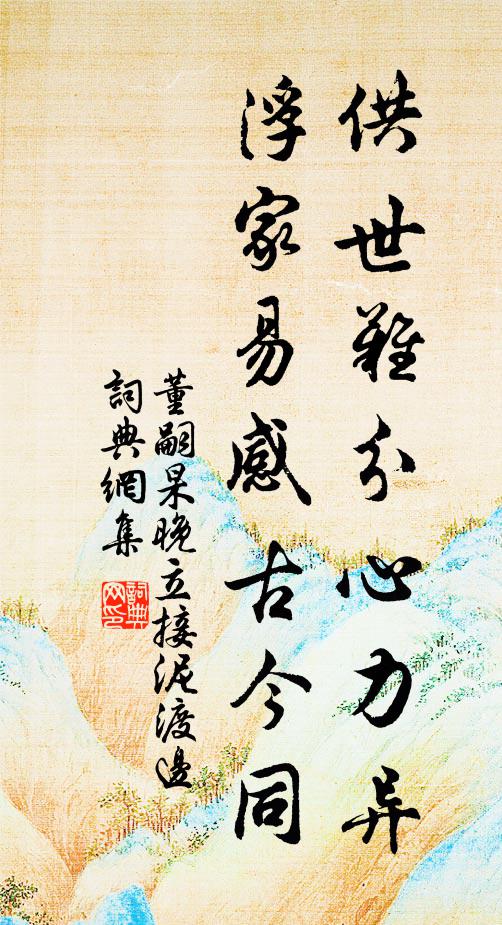 供世難分心力异
浮家易感古今同
董嗣杲晚立接泥渡邊
詞典網集
詞典
网印